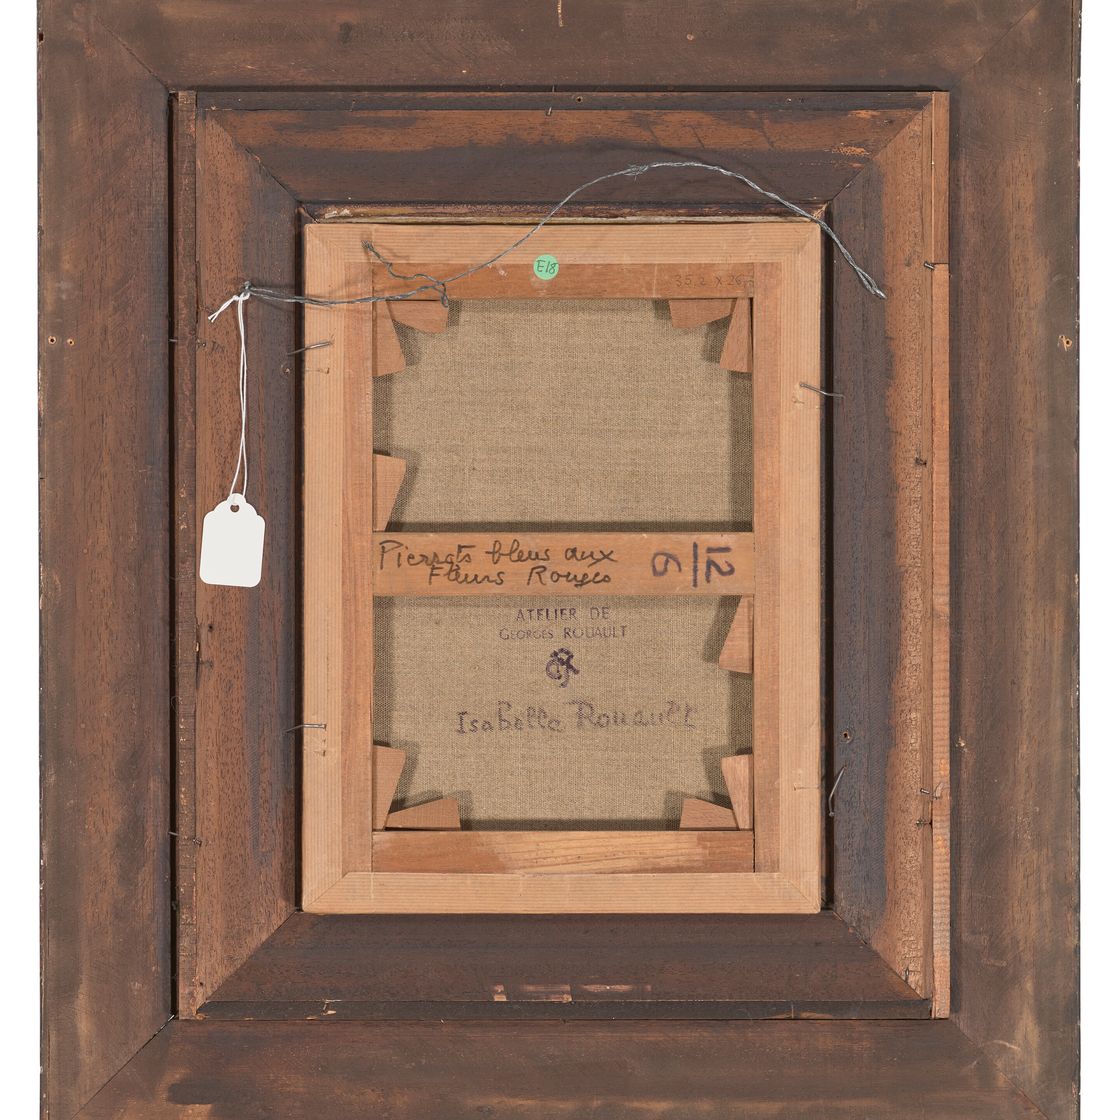 E18
35.2 x 26.
Pierrots bleus aux
Fleurs Rouges
12/6
ATELIER DE
GEORGES ROUAULT
Isabelle Rouault